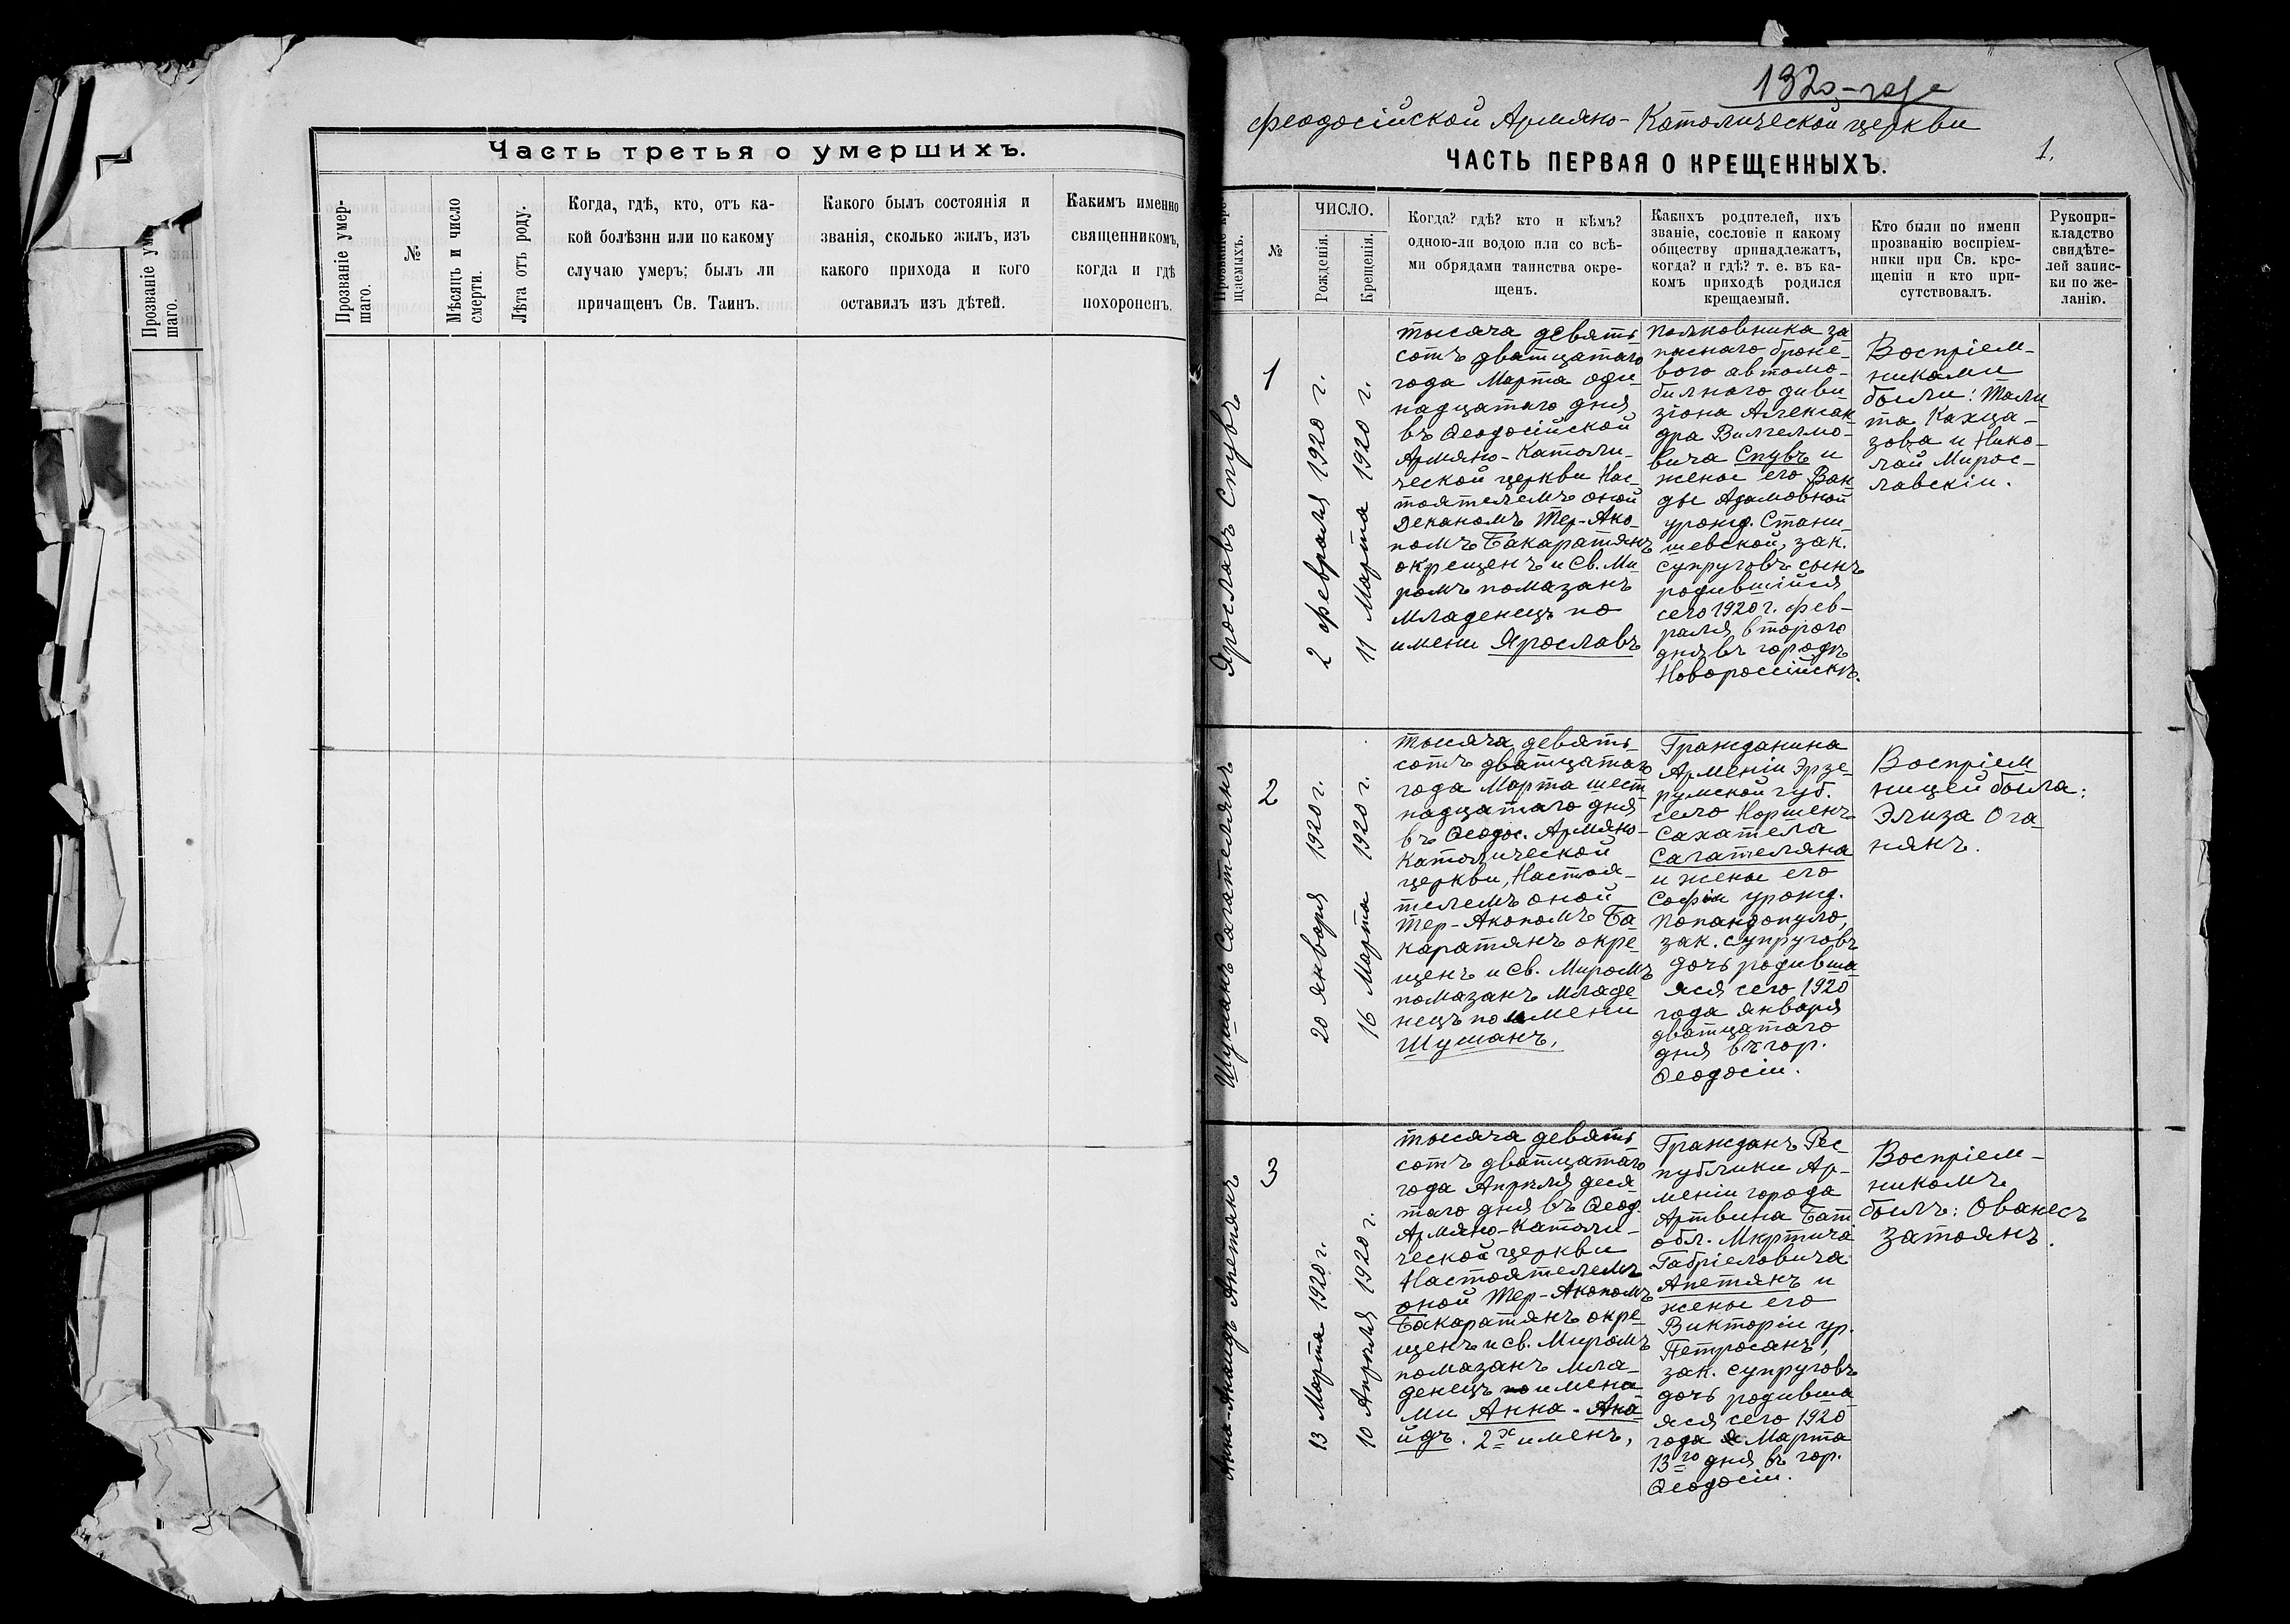 Прозваніе уме
шаго.
Часть третья о умершихъ.
Прозваніе умер-
шаго.
№
Мѣсяцъ и число
смерти.
Лѣта отъ роду.
Когда, гдѣ, кто, отъ ка-
кой болѣзни или по какому
случаю умеръ; былъ ли
причащенъ Св. Таинъ.
Какого былъ состоянія и
званія, сколько жилъ, изъ
какого прихода и кого
оставилъ изъ дѣтей.
Какимъ именно
священникомъ,
когда и гдѣ
похороненъ.
1920-года
Феодосійской Армяно-Католической церкви
1.
ЧАСТЬ ПЕРВАЯ О КРЕЩЕННЫХЪ.
щаемыхъ.
№
ЧИСЛО.
Рожденія.
Крещенія.
Когда? гдѣ? кто и кѣмъ?
одною-ли водою или со всѣ-
ми обрядами таинства окре-
щенъ.
Какихъ родителей, ихъ
званіе, сословіе и какому
обществу принадлежатъ,
когда? и гдѣ? т. е. въ ка-
комъ приходѣ родился
крещаемый.
Кто были по имени
прозванію воспріем-
ники при Св. кре-
щеніи и кто при-
сутствовалъ.
Рукопри-
кладство
свидѣте-
лей запис-
ки по же-
ланію.
Ярославъ Спувъ
1
2 февраля 1920 г.
11 Марта 1920 г.
тысяча девять
сотъ дватцатаго
года Марта оди
надцатаго дня
въ Ѳеодосійской
Армяно-Католи-
ческой церкви Нас-
тоятелемъ оной
Деканомъ Тер-Яко-
помъ Бакаратянъ
окрещенъ и Св. Ми
ромъ помазанъ
младенецъ по
имени Ярославъ
Полковника за
паснаго броне-
вого автомо-
бильнаго диви
зіона Александ
дра Вилгелмо-
вича Спувъ и
жены его Ван
ды Адамовной
урожд. Стани-
шевской, зак.
супруговъ сынъ
родившійся
сего 1920 г. фев-
раля второго
дня въ городѣ
Новороссійскѣ.
Воспріем-
никами
были: Тали
та Кахца-
зова и Нико-
лай Мирос-
лавскіи.
Шушанъ Сагателянъ
2
20 января 1920 г.
16 Марта 1920 г.
тысяча девять
сотъ дватцатаго
года Марта шест
надцатаго дня
въ Ѳеодос. Армяно-
Католической
церкви, Настоя-
телемъ оной
Тер-Акопомъ Ба
каратянъ окре
щенъ и Св. Миромъ
помазанъ младе
нецъ по имени
Шушанъ,
Гражданина
Арменіи Эрзе-
румской губ.
село Норшенъ
Сахатела
Сагателяна
и жены его
Софіи урожд.
Попандопуло,
зак. супруговъ
дочь родивша
яся сего 1920
года января
дватцатаго
дня въ гор.
Ѳеодосіи.
Воспріем
ницей была:
Элиза Ога
нянъ.
Анна-Анаидъ Апетянъ
3
13 Марта 1920 г.
10 Апрѣля 1920 г.
тысяча девять
сотъ дватцатаго
года Апрѣля деся
таго дня въ Ѳеод.
Армяно-Католи-
ческой церкви
Настоятелемъ
оной Тер-Акопомъ
Бакаратянъ окре
щенъ и св. Миромъ
помазанъ мла-
денецъ по имена
ми Анна-Ана
идъ. 2х именъ,
Гражданъ Рес
публики Ар-
меніи города
Артвина Бат.
обл. Мкртича
Габріеловича
Апетянъ и
жены его
Викторіи ур.
Петросянъ,
зак. супруговъ
дочь родивша
яся сего 1920
года Марта
13го дня въ гор.
Ѳеодосіи.
Воспріем-
никомъ
былъ: Ованесъ
Затоянъ.